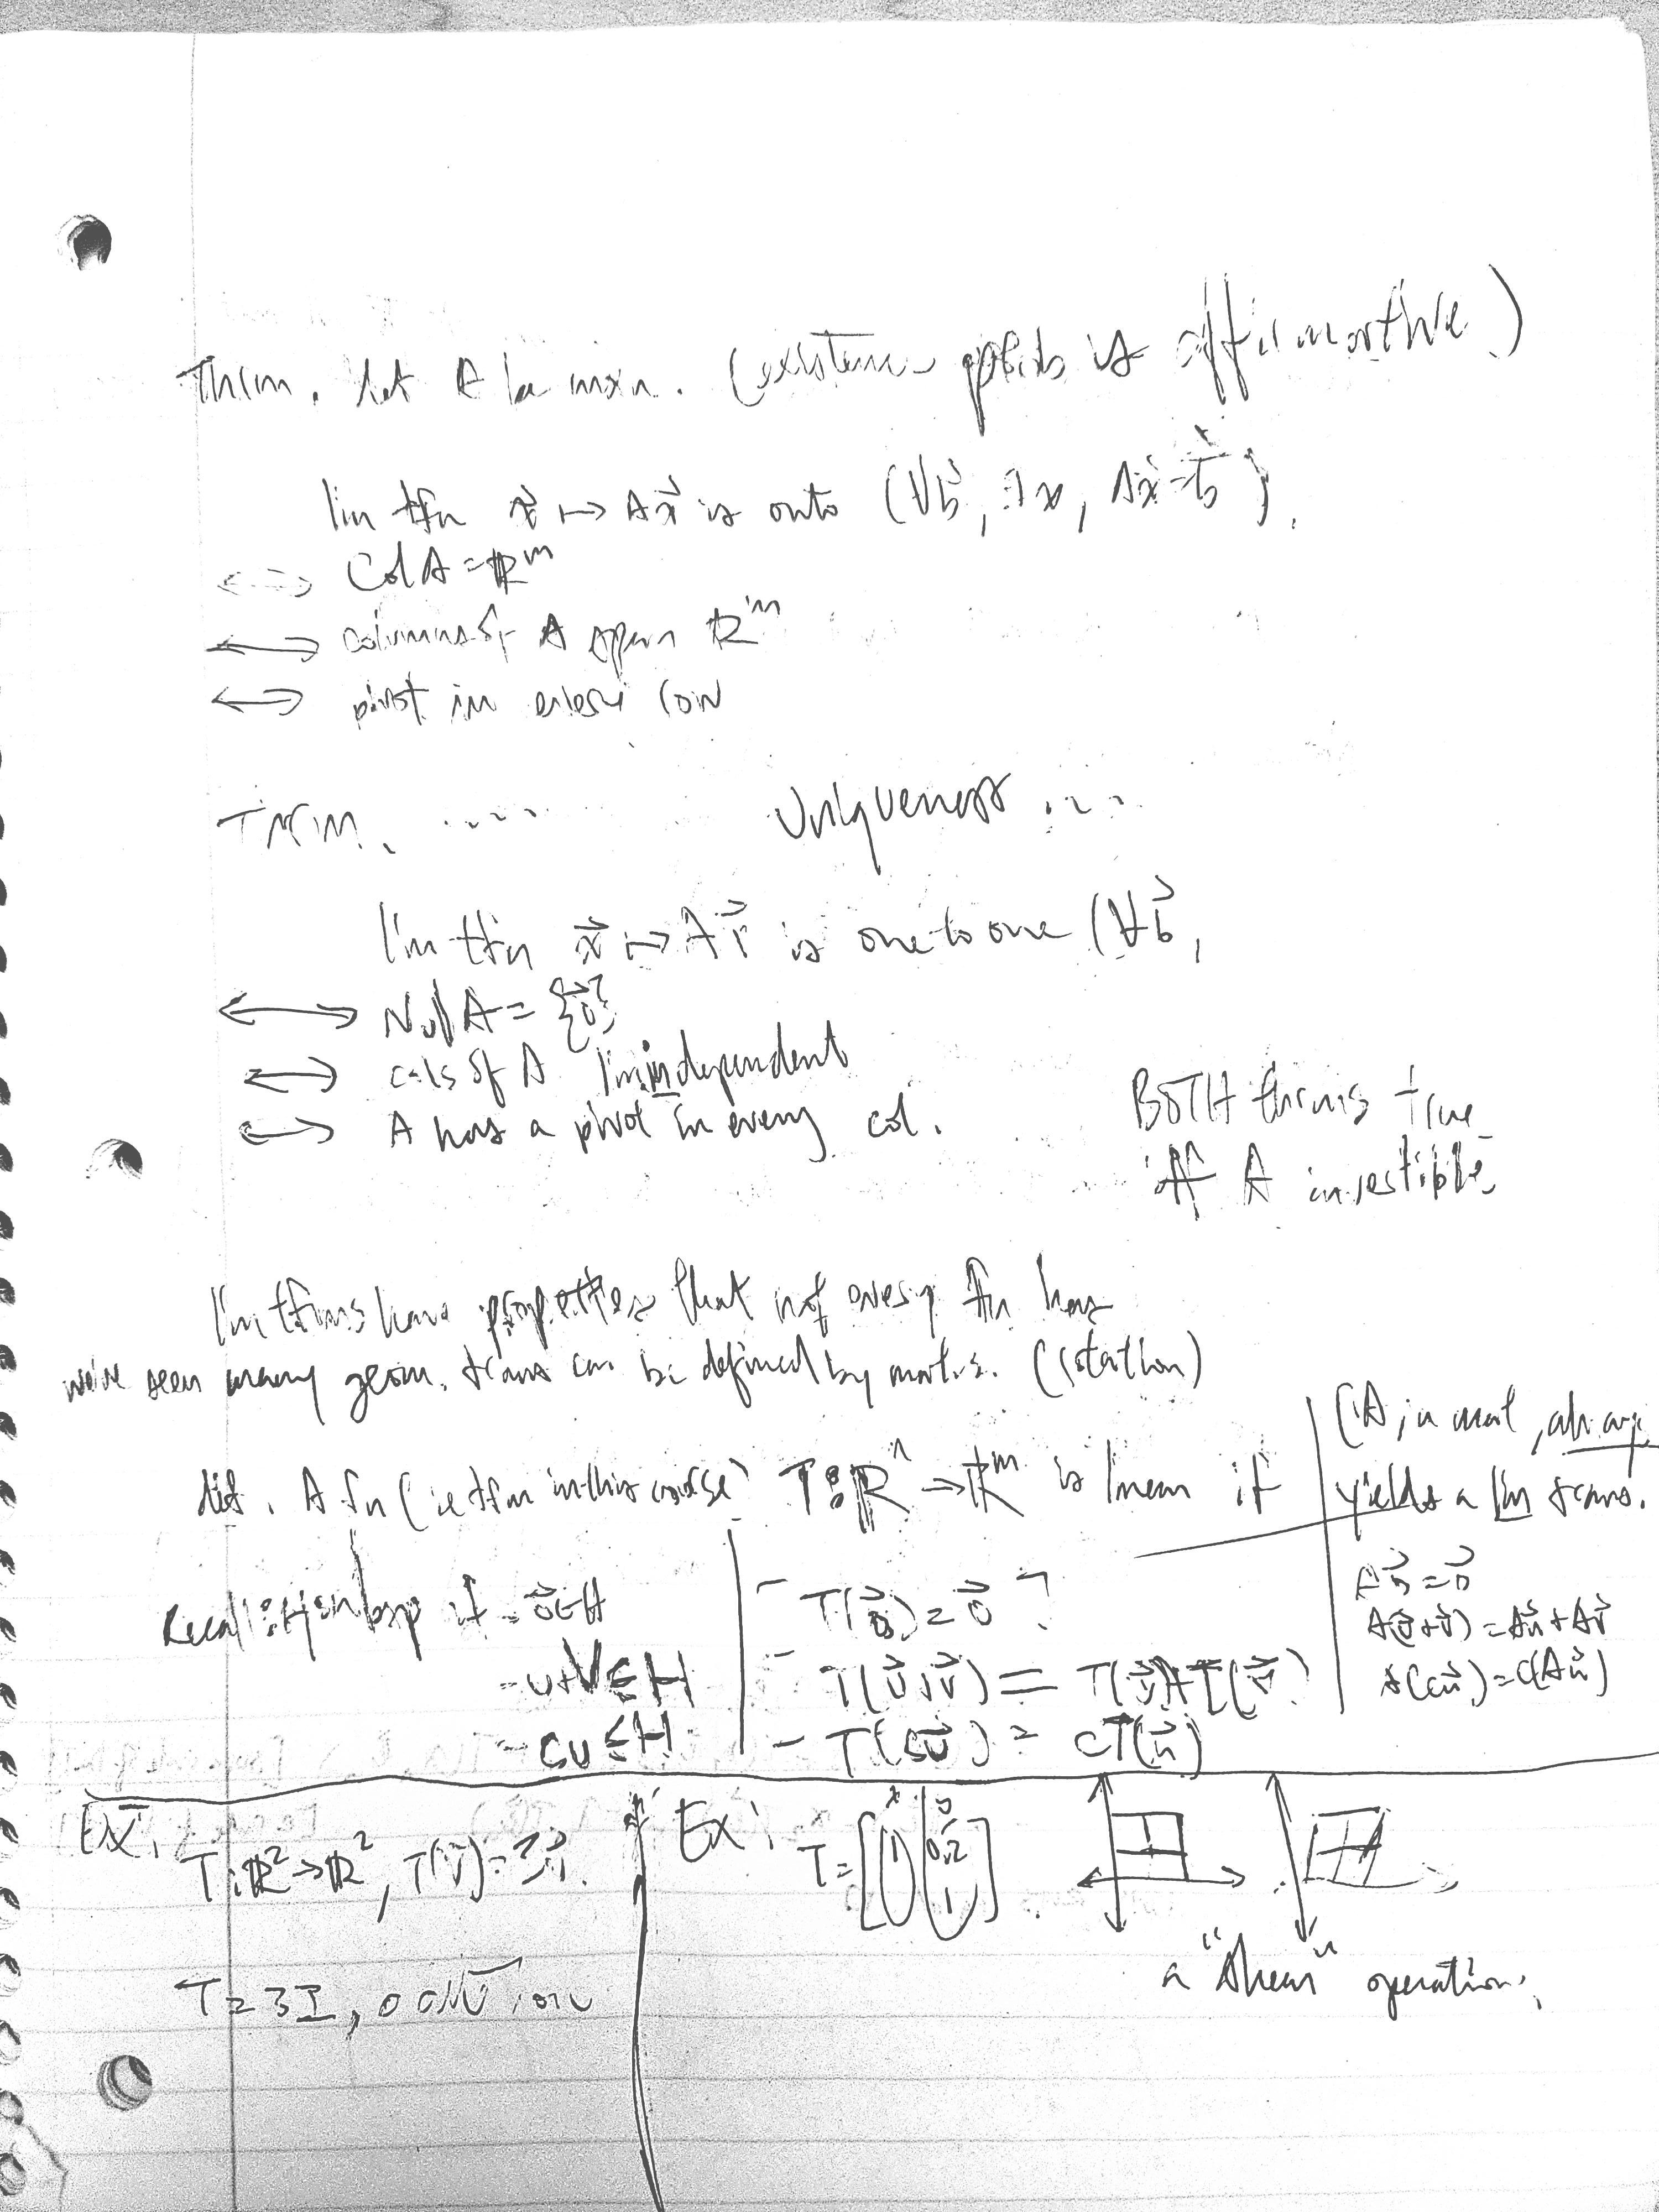 Thrm. let A be mxn. (existence is affirmative)
lin tfn x⃗ ↦ Ax⃗ is onto (∀b⃗, ∃x, Ax⃗=b⃗).
↔ Col A = ℝ^m
↔ columns of A span ℝ^m
↔ pivot in every row
Thrm. ..... Uniqueness ....
lin tfn x⃗ ↦ Ax⃗ is one to one (∀b⃗,
↔ Nul A = {0⃗}
↔ cols of A lin independent
↔ A has a pivot in every col.
BOTH thrms true
iff A invertible.
lin tfns have properties that not every fn has
we've seen many geom. trans can be defined by matrs. (rotation)
def. A fn (ie tfn in this course) T: ℝ^n → ℝ^m is linear if
(A, a mat, always
yields a lin trans.
A0⃗ = 0⃗
A(u⃗+v⃗) = Au⃗ + Av⃗
A(cu⃗) = c(Au⃗)
Recall: H subsp if - 0⃗∈H
- u+v∈H
- cu∈H
- T(0⃗) = 0⃗
- T(u⃗+v⃗) = T(u⃗)+T(v⃗)
- T(cu⃗) = cT(u⃗)
Ex.
T: ℝ² → ℝ², T(v⃗) = 3v⃗.
T = 3I,
Ex:
x y
T = [1 0.2
1]
a "shear" operation.